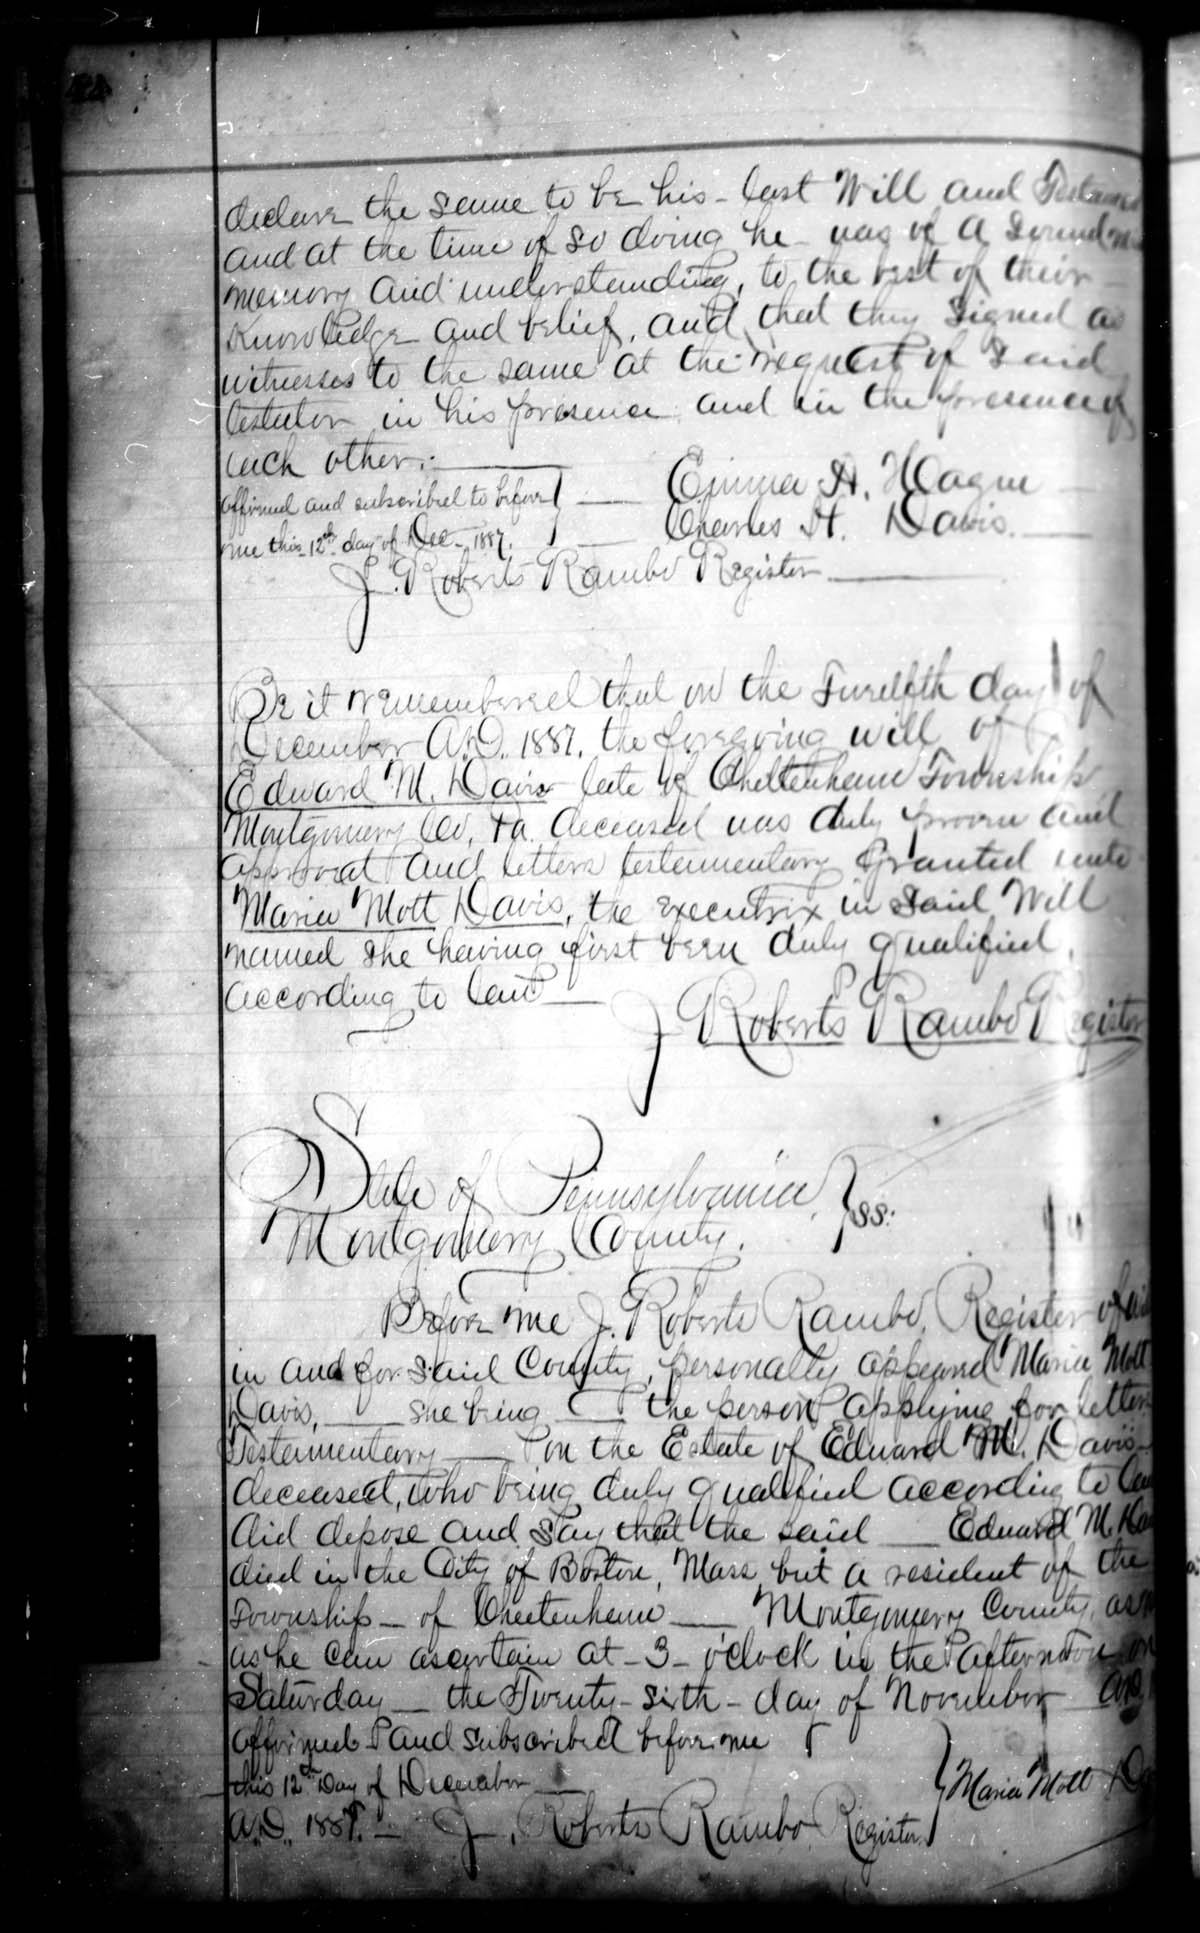 declare the same to be his last Will and Testament
and at the time of so doing he was of a Sound
memory and understanding, to the best of their
Knowledge and belief, and that they Signed as
witnesses to the same at the request of Said
testator in his presence and in the presence of
each other.
affirmed and subscribed to before
Emma A.
me this 12th day of Dec. 1887.
Charles H. Davis.
J. Roberts Rambo Register
Be it remembered that on the Twelfth day of
December A.D. 1887, the foregoing will of
Edward M. Davis late of Cheltenham Township
Montgomery Co. Pa. deceased was duly proven and
approved and letters testamentary Granted unto
Maria Mott Davis, the executrix in Said Will
named she having first been duly qualified
according to law
J Roberts Rambo Register
State of Pennsylvania,
Montgomery County.
} ss:
Before me J. Roberts Rambo, Register of
in and for Said County, personally appeared Maria Mott
Davis, she being the person applying for letters
Testamentary on the Estate of Edward M. Davis
deceased, who being duly qualified according to law
did depose and Say that the said Edward M.
died in the City of Boston, Mass but a resident of the
Township of Cheltenham Montgomery County, as
as he can ascertain at 3 o'clock in the afternoon on
Saturday the Twenty-sixth day of November A.D.
affirmed and subscribed before me
this 12th Day of December
Maria Mott
A.D. 1887. J. Roberts Rambo Register